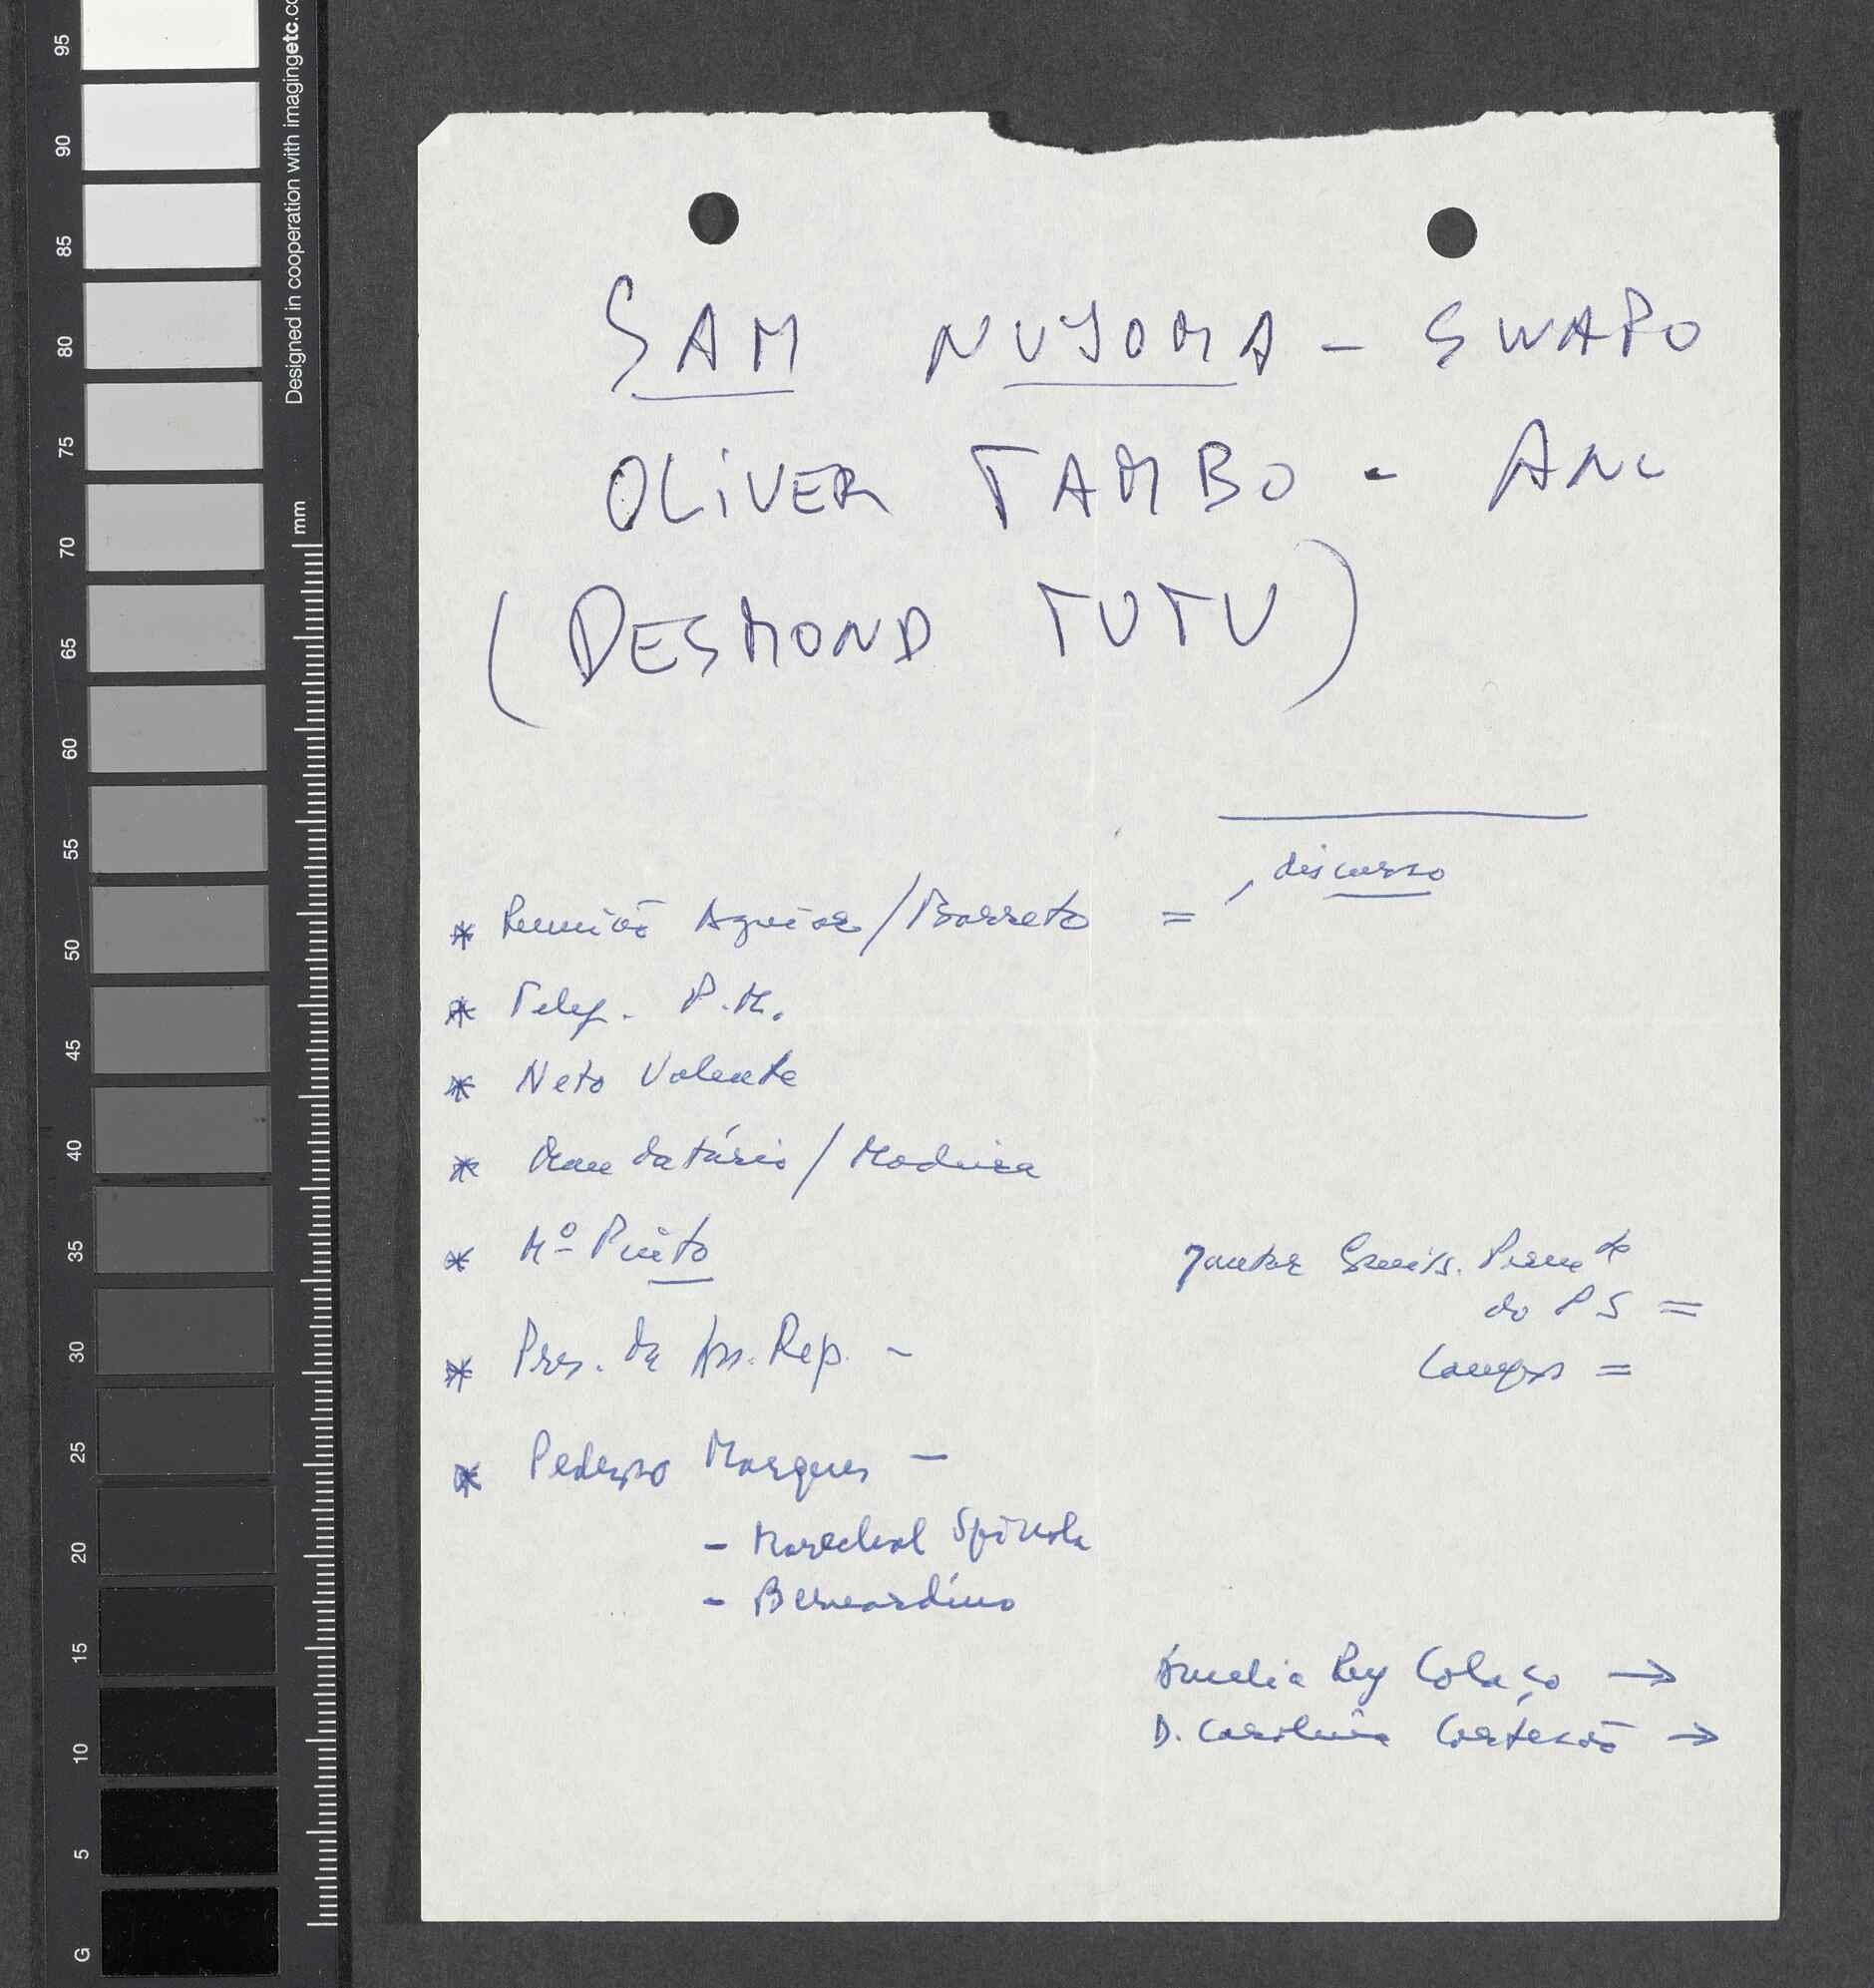 SAM NUJOMA – SWAPO
OLIVER TAMBO - ANC
(DESMOND TUTU)
discurso
* Reunião Aguiar/Barreto =
* Telef. P.M.
* Neto Valente
* Mandatário/Madeira
* Mº Pinto
* Pres. da Ass. Rep. –
* Pedro Marques –
- Marechal Spínola
- Bernardino
Jantar Comis. Perm.te
do PS =
Campos =
Amélia Rey Colaço →
D. Carolina Cortesão →
Designed in cooperation with imagingetc.co
mm
95
90
85
80
75
70
65
60
55
50
45
40
35
30
25
20
15
10
5
G